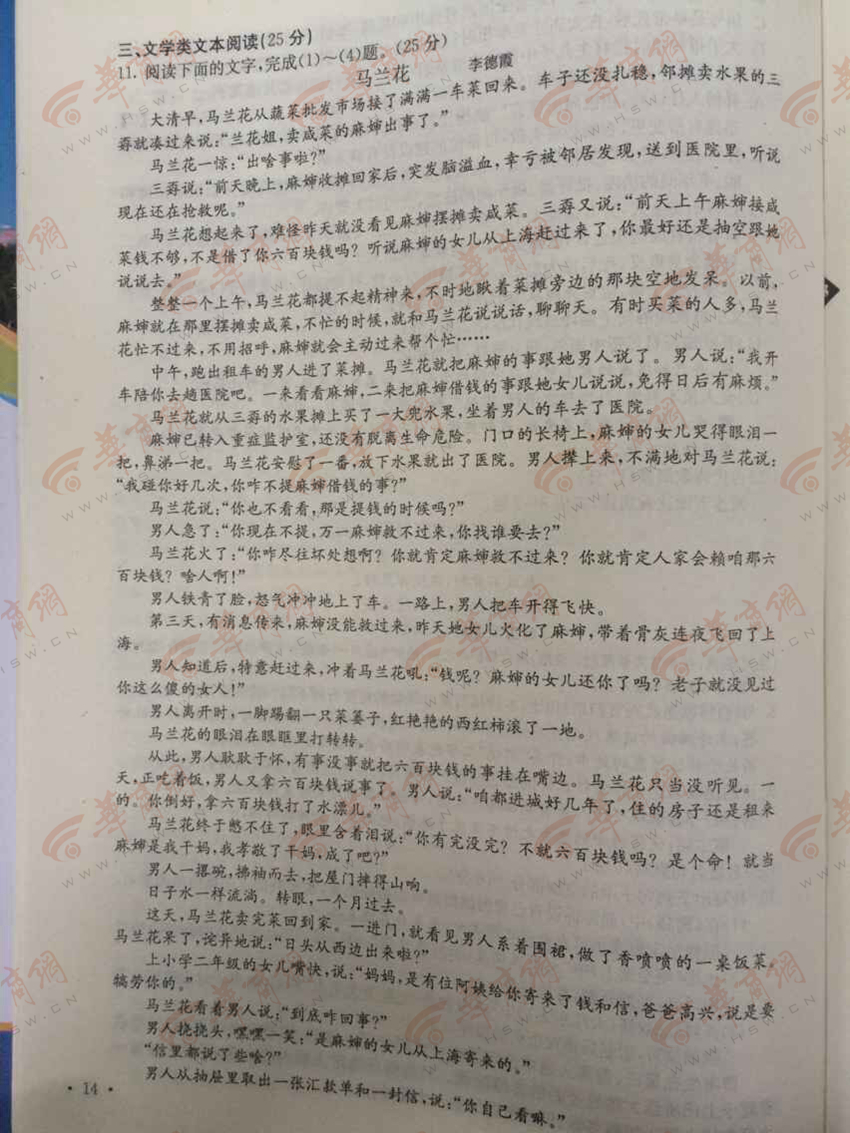 三、文学类文本阅读(25分)
11. 阅读下面的文字,完成(1)～(4)题。(25分)
马兰花 李德霞
大清早,马兰花从蔬菜批发市场接了满满一车菜回来。车子还没扎稳,邻摊卖水果的三
孬就凑过来说:“兰花姐,卖咸菜的麻婶出事了。”
马兰花一惊:“出啥事啦?”
三孬说:“前天晚上,麻婶收摊回家后,突发脑溢血,幸亏被邻居发现,送到医院里,听说
现在还在抢救呢。”
马兰花想起来了,难怪昨天就没看见麻婶摆摊卖咸菜。三孬又说:“前天上午麻婶接咸
菜钱不够,不是借了你六百块钱吗?听说麻婶的女儿从上海赶过来了,你最好还是抽空跟她
说说去。”
整整一个上午,马兰花都提不起精神来,不时地瞅着菜摊旁边的那块空地发呆。以前,
麻婶就在那里摆摊卖咸菜,不忙的时候,就和马兰花说说话,聊聊天。有时买菜的人多,马兰
花忙不过来,不用招呼,麻婶就会主动过来帮个忙……
中午,跑出租车的男人进了菜摊。马兰花就把麻婶的事跟她男人说了。男人说:“我开
车陪你去趟医院吧。一来看看麻婶,二来把麻婶借钱的事跟她女儿说说,免得日后有麻烦。”
马兰花就从三孬的水果摊上买了一大兜水果,坐着男人的车去了医院。
麻婶已转入重症监护室,还没有脱离生命危险。门口的长椅上,麻婶的女儿哭得眼泪一
把,鼻涕一把。马兰花安慰了一番,放下水果就出了医院。男人撵上来,不满地对马兰花说:
“我碰你好几次,你咋不提麻婶借钱的事?”
马兰花说:“你也不看看,那是提钱的时候吗?”
男人急了:“你现在不提,万一麻婶救不过来,你找谁要去?”
马兰花火了:“你咋尽往坏处想啊?你就肯定麻婶救不过来?你就肯定人家会赖咱那六
百块钱?啥人啊!”
男人铁青了脸,怒气冲冲地上了车。一路上,男人把车开得飞快。
第三天,有消息传来,麻婶没能救过来,昨天她女儿火化了麻婶,带着骨灰连夜飞回了上
海。
男人知道后,特意赶过来,冲着马兰花吼:“钱呢?麻婶的女儿还你了吗?老子就没见过
你这么傻的女人!”
男人离开时,一脚踢翻一只菜篓子,红艳艳的西红柿滚了一地。
马兰花的眼泪在眼眶里打转转。
从此,男人耿耿于怀,有事没事就把六百块钱的事挂在嘴边。马兰花只当没听见。一
天,正吃着饭,男人又拿六百块钱说事了。男人说:“咱都进城好几年了,住的房子还是租来
的。你倒好,拿六百块钱打了水漂儿。”
马兰花终于憋不住了,眼里含着泪说:“你有完没完?不就六百块钱吗?是个命!就当
麻婶是我干妈,我孝敬了干妈,成了吧?”
男人一撂碗,拂袖而去,把屋门摔得山响。
日子水一样流淌。转眼,一个月过去。
这天,马兰花卖完菜回到家。一进门,就看见男人系着围裙,做了香喷喷的一桌饭菜。
马兰花呆了,诧异地说:“日头从西边出来啦?”
上小学二年级的女儿嘴快,说:“妈妈,是有位阿姨给你寄来了钱和信,爸爸高兴,说是要
犒劳你的。”
马兰花看着男人说:“到底咋回事?”
男人挠挠头,嘿嘿一笑:“是麻婶的女儿从上海寄来的。”
“信里都说了些啥?”
男人从抽屉里取出一张汇款单和一封信,说:“你自己看嘛。”
• 14 •
華商網
WWW.HSW.CN